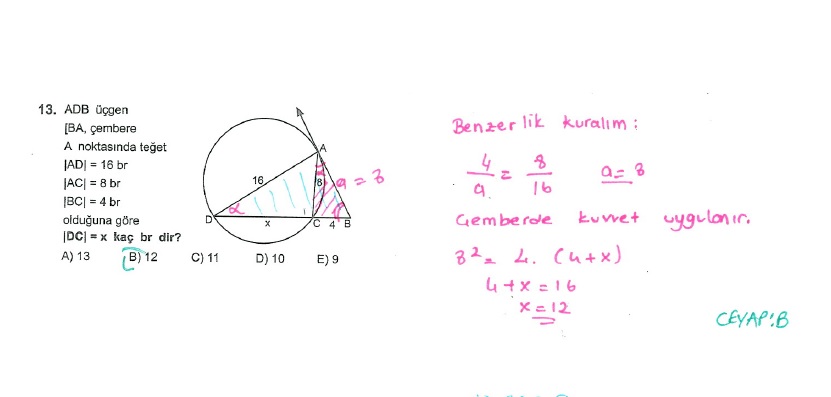 13. ADB üçgen
[BA, çembere
A noktasında teğet
|AD| = 16 br
|AC| = 8 br
|BC| = 4 br
olduğuna göre
|DC| = x kaç br dir?
A) 13 B) 12 C) 11 D) 10 E) 9
A
16
8
a = 8
α
D
x
C 4 B
Benzerlik kuralım:
4/a = 8/16 a = 8
Çemberde kuvvet uygulanır.
8² = 4. (4+x)
4+x = 16
x = 12
CEVAP:B